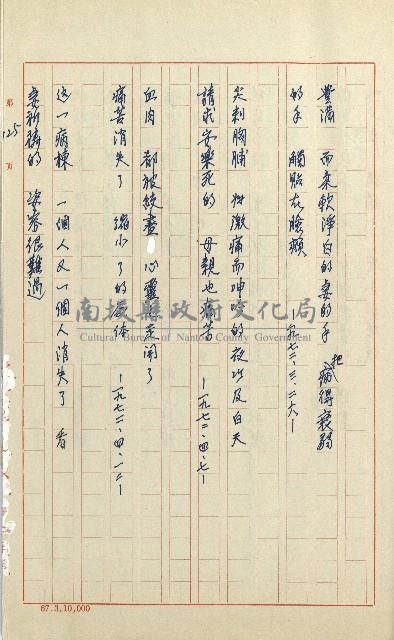 豐満　而柔軟淨白的妻的手　把病得衰弱
的手　觸貼在臉頰　—一九七二、三、二六—
尖刺胸脯　料激痛而呻吟的夜以及白天
請求安樂死的　母親也痛苦　—一九七二、四、七—
血肉　都被絞盡　心靈走開了
痛苦消失了　縮小了的皮体　—一九七二、四、一二—
这一病棟　一個人又一個人消失了　看
妻祈禱的　姿容很難過
第125頁
南投縣政府文化局
Cultural Bureau of Nantou County Government
67.3.10,000